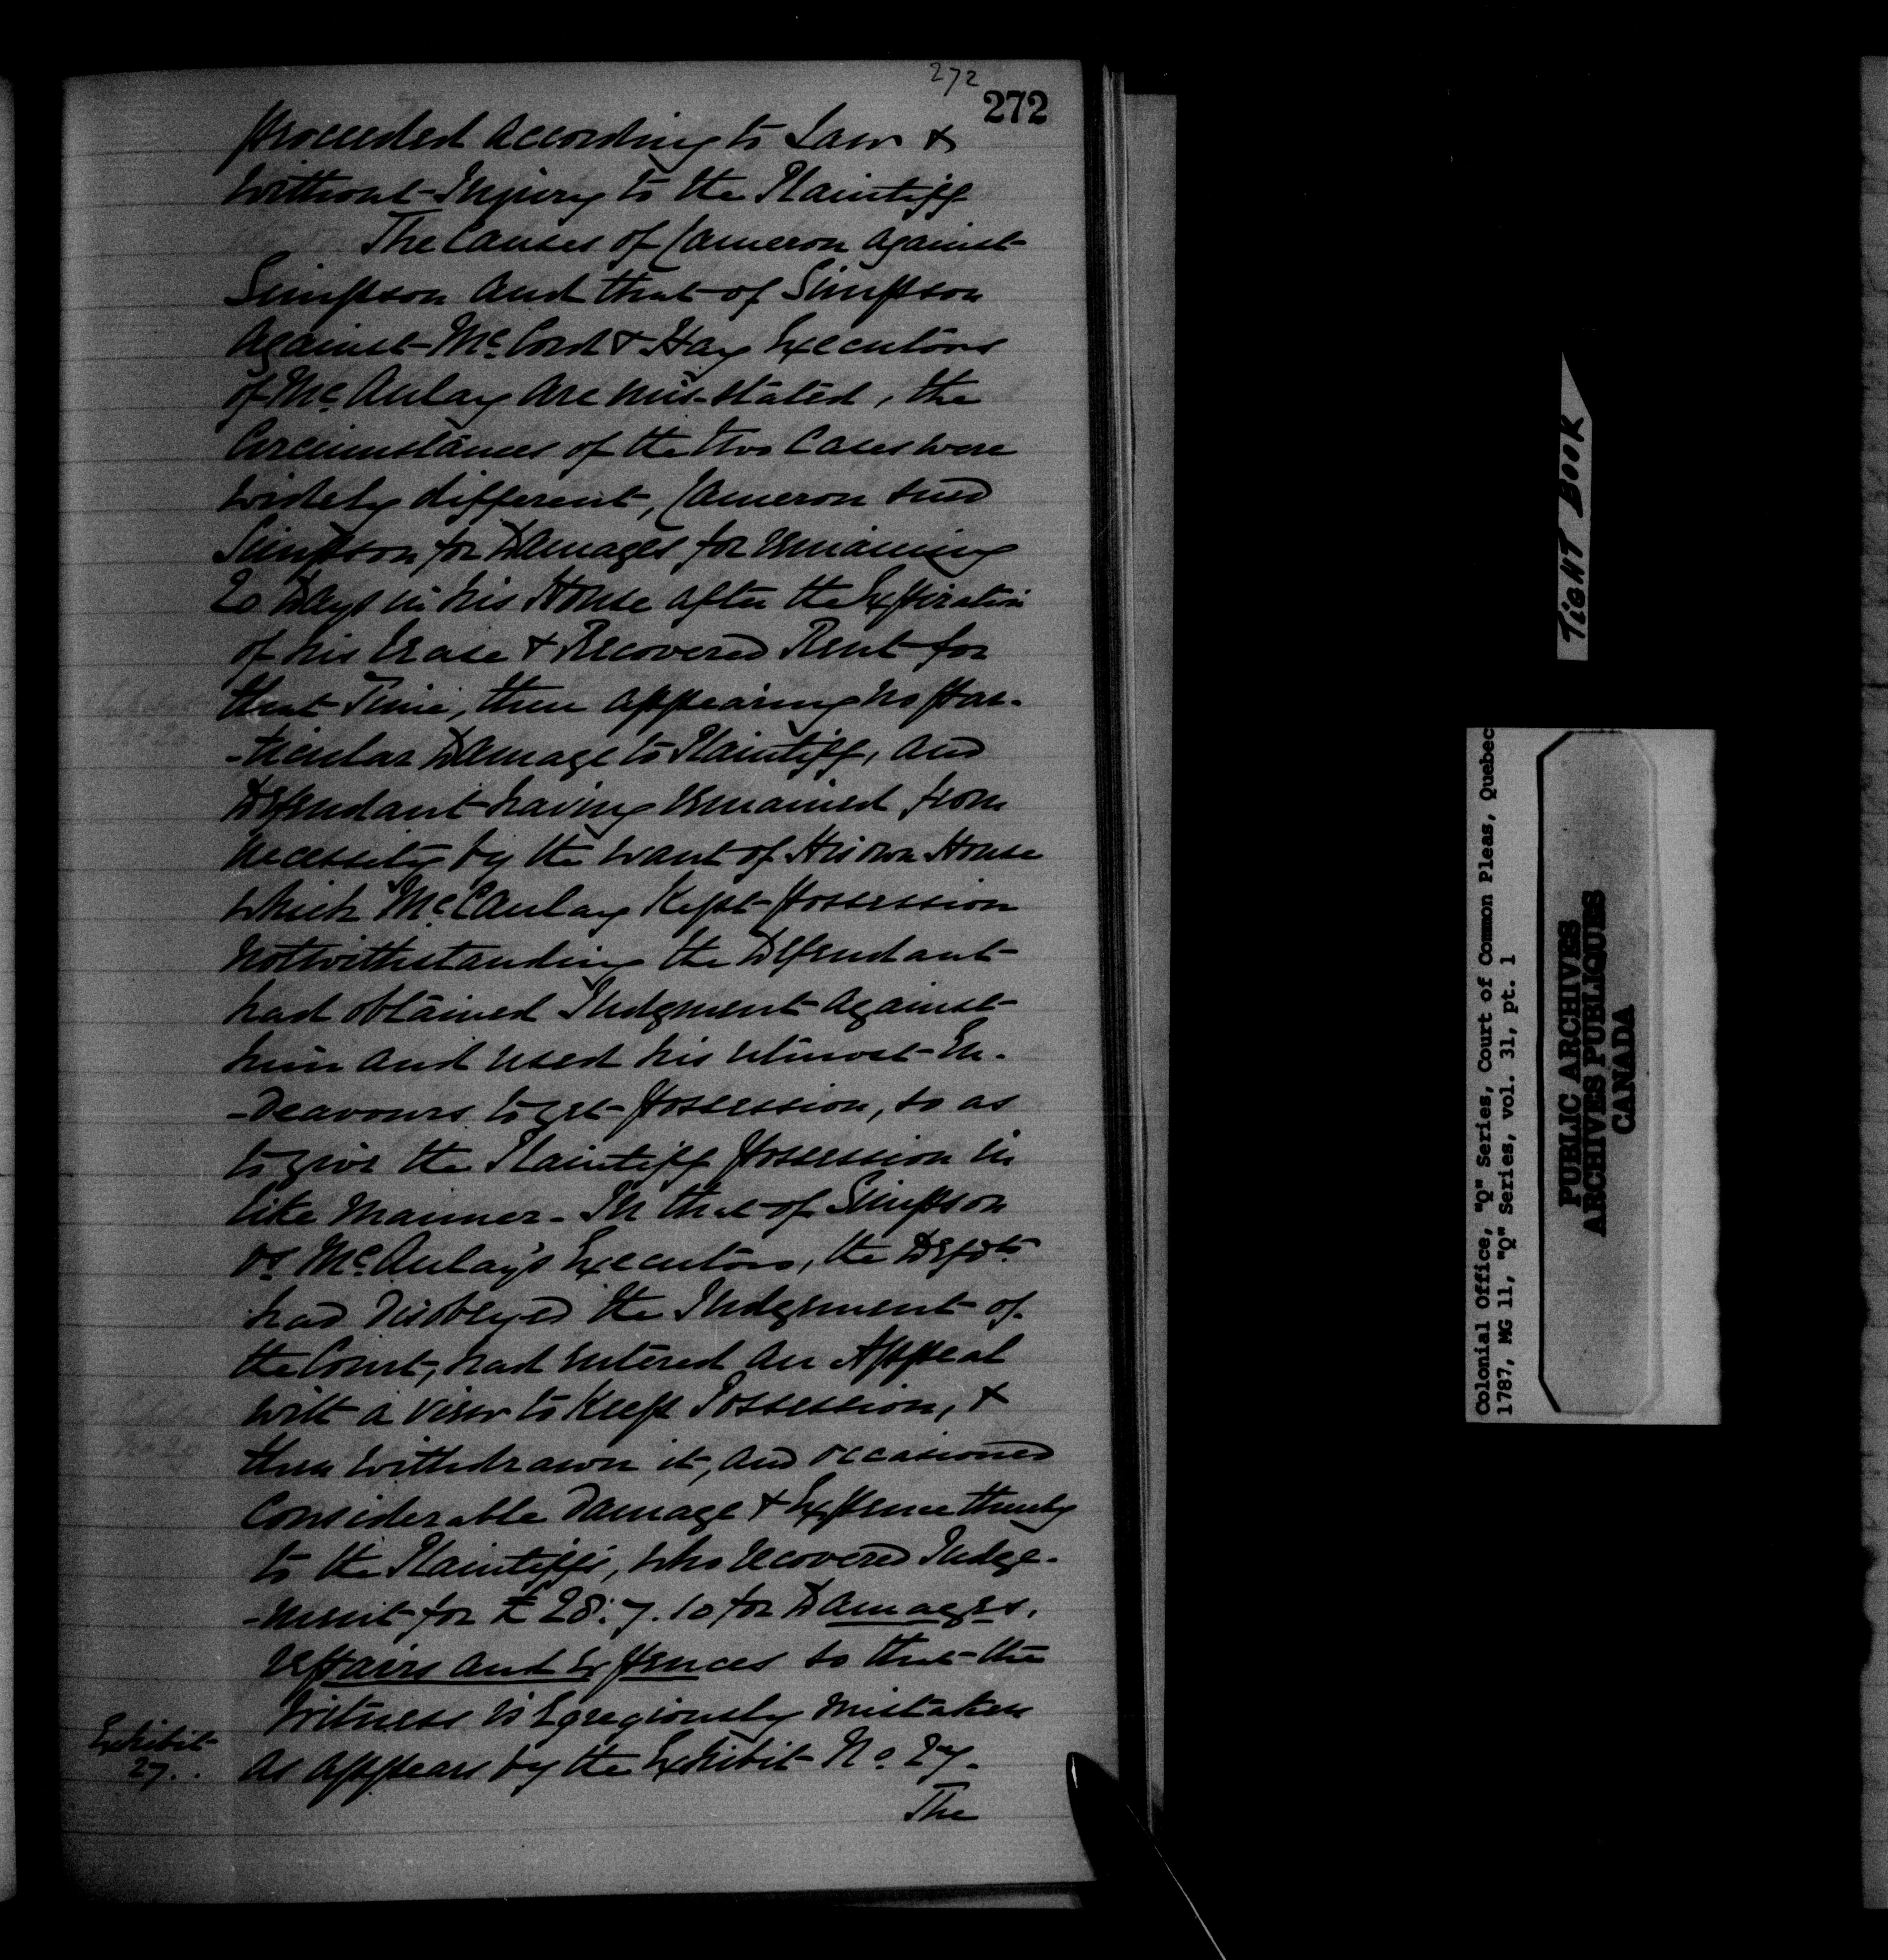 272
272
proceeded according to Law &
without Injury to the Plaintiff
The Causes of Cameron against
Simpson and that of Simpson
against McCord & Hay Executors
of McAulay are mis-stated, the
Circumstances of the two Cases were
widely different, Cameron sued
Simpson for Damages for remaining
20 Days in his House after the Expiration
of his Lease & Recovered Rent for
that Time, there appearing no par-
-ticular Damage to Plaintiff, and
Defendant having remained from
necessity by the want of His own House
which McCaulay Kept possession
notwithstanding the Defendant
had obtained Judgment against
him and used his utmost En-
-deavours to get possession, so as
to give the Plaintiff possession in
like manner - In that of Simpson
vs McAulay's Executors, the Defdts.
had disobeyed the Judgement of
the Court, had entered an Appeal
with a view to Keep Possession, &
then withdrawn it, and occasioned
Considerable Damage & Expence thereby
to the Plaintiffs, who recovered Judge-
-ment for £28.7.10 for Damages,
repairs and Expences so that the
Witness is Egregiously mistaken
as appears by the Exhibit No. 27.
Exhibit
27..
The
TIGHT BOOK
Colonial Office, "Q" Series, Court of Common Pleas, Quebec
1787, MG 11, "Q" Series, vol. 31, pt. 1
PUBLIC ARCHIVES
ARCHIVES PUBLIQUES
CANADA